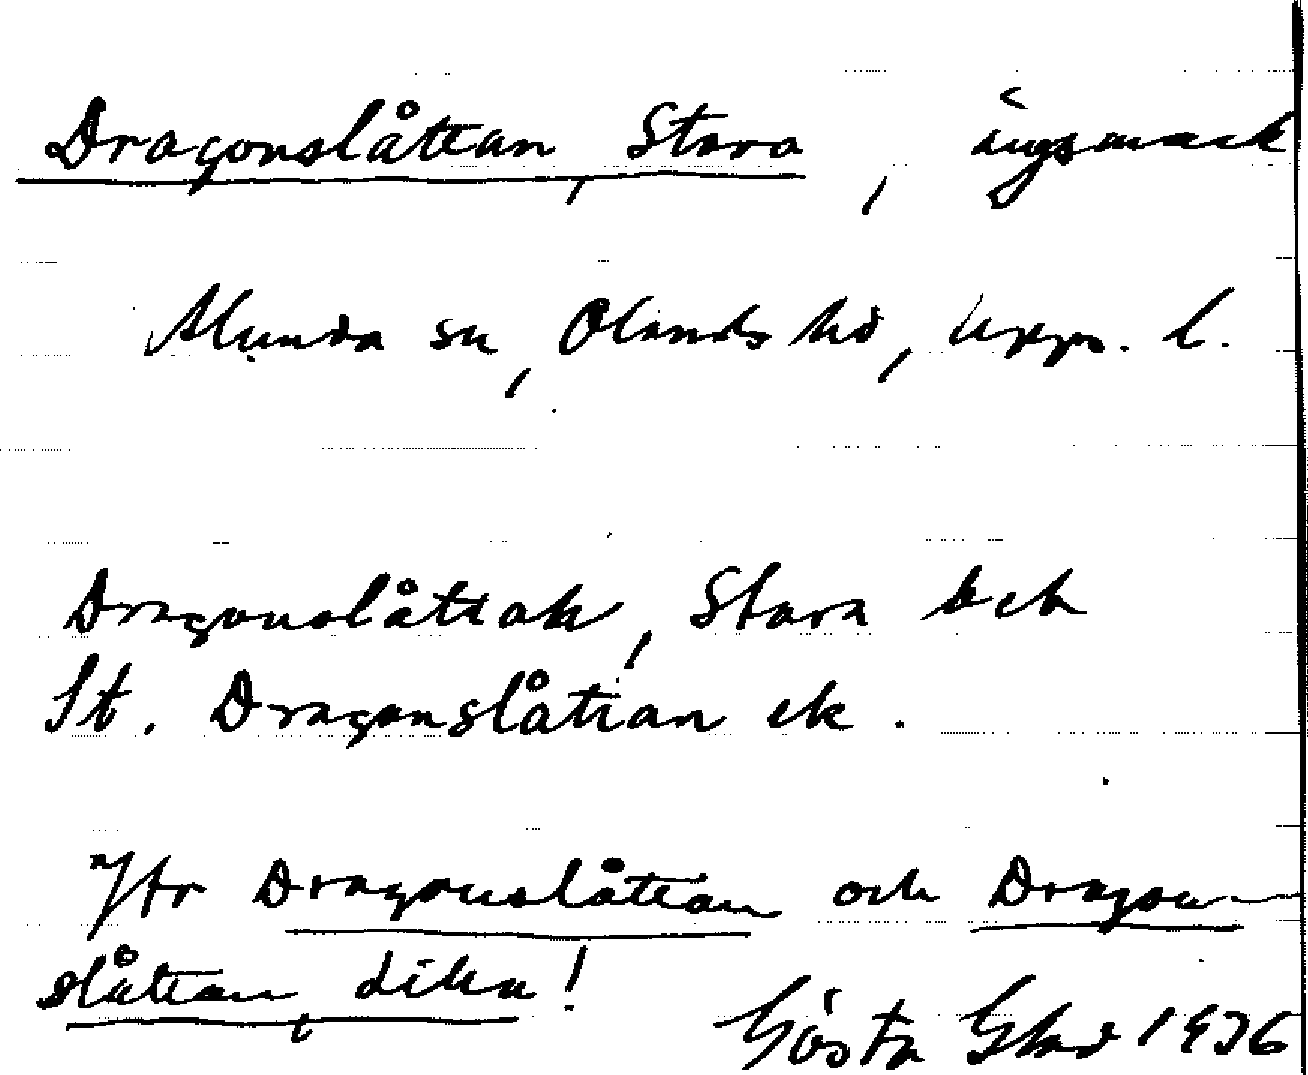 Dragonslåttan, Stora, ängsmark
Alunda sn, Olands hd, Upps. l.
Dragonslåttan, Stora och
St. Dragonslåttan ek.
Jfr Dragonslåttan och Dragon-
slåttan, dika!
Gösta 1936